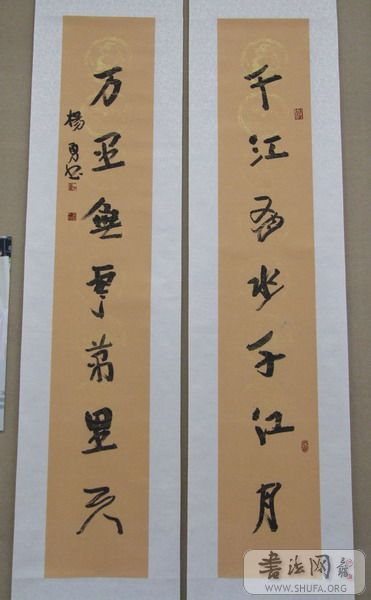 千江有水千江月
万里無雲萬里天
楊勇书
書法网
WWW.SHUFA.ORG